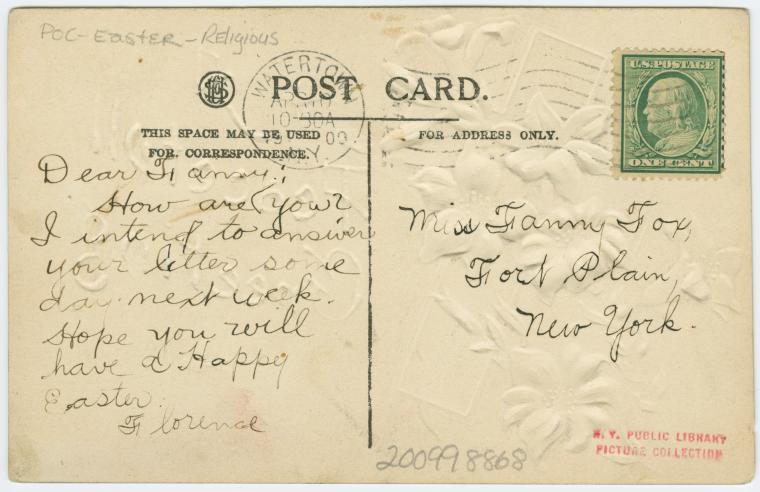 POC-Easter-Religious
POST CARD.
WATERTOWN
10-30A
N.Y.
U.S. POSTAGE
ONE CENT
THIS SPACE MAY BE USED
FOR CORRESPONDENCE.
FOR ADDRESS ONLY.
Dear Fanny;
How are you?
I intend to answer
your letter some
day next week.
Hope you will
have a Happy
Easter.
Florence
Miss Fanny Fox,
Fort Plain,
New York.
N.Y. PUBLIC LIBRARY
PICTURE COLLECTION
200998868